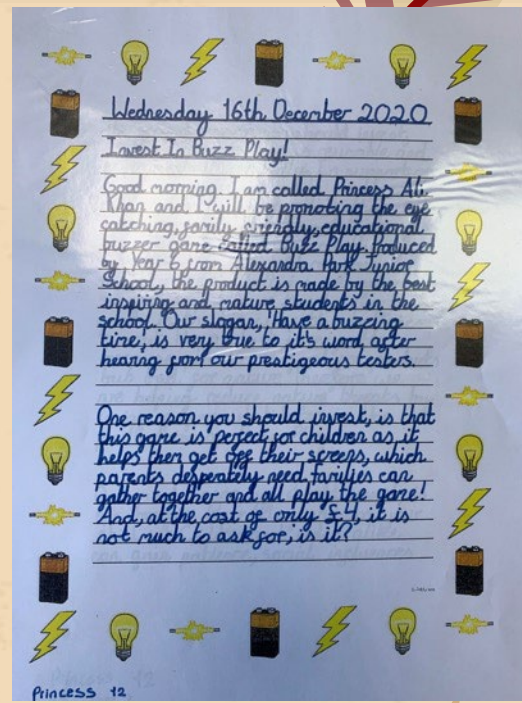 Wednesday 16th December 2020
Invest In Buzz Play!
Good morning. I am called Princess Ali
Khan and I will be promoting the eye
catching, family friendly, educational
buzzer game called Buzz Play. Produced
by Year 6 from Alexandra Park Junior
School, the product is made by the best
inspiring and mature students in the
school. Our slogan, 'Have a buzzing
time', is very true to it's word, after
hearing from our prestigeous testers.
One reason you should invest, is that
this game is perfect for children as it
helps them get off their screens, which
parents desperately need, families can
gather together and all play the game!
And, at the cost of only £4, it is
not much to ask for, is it?
Princess 12